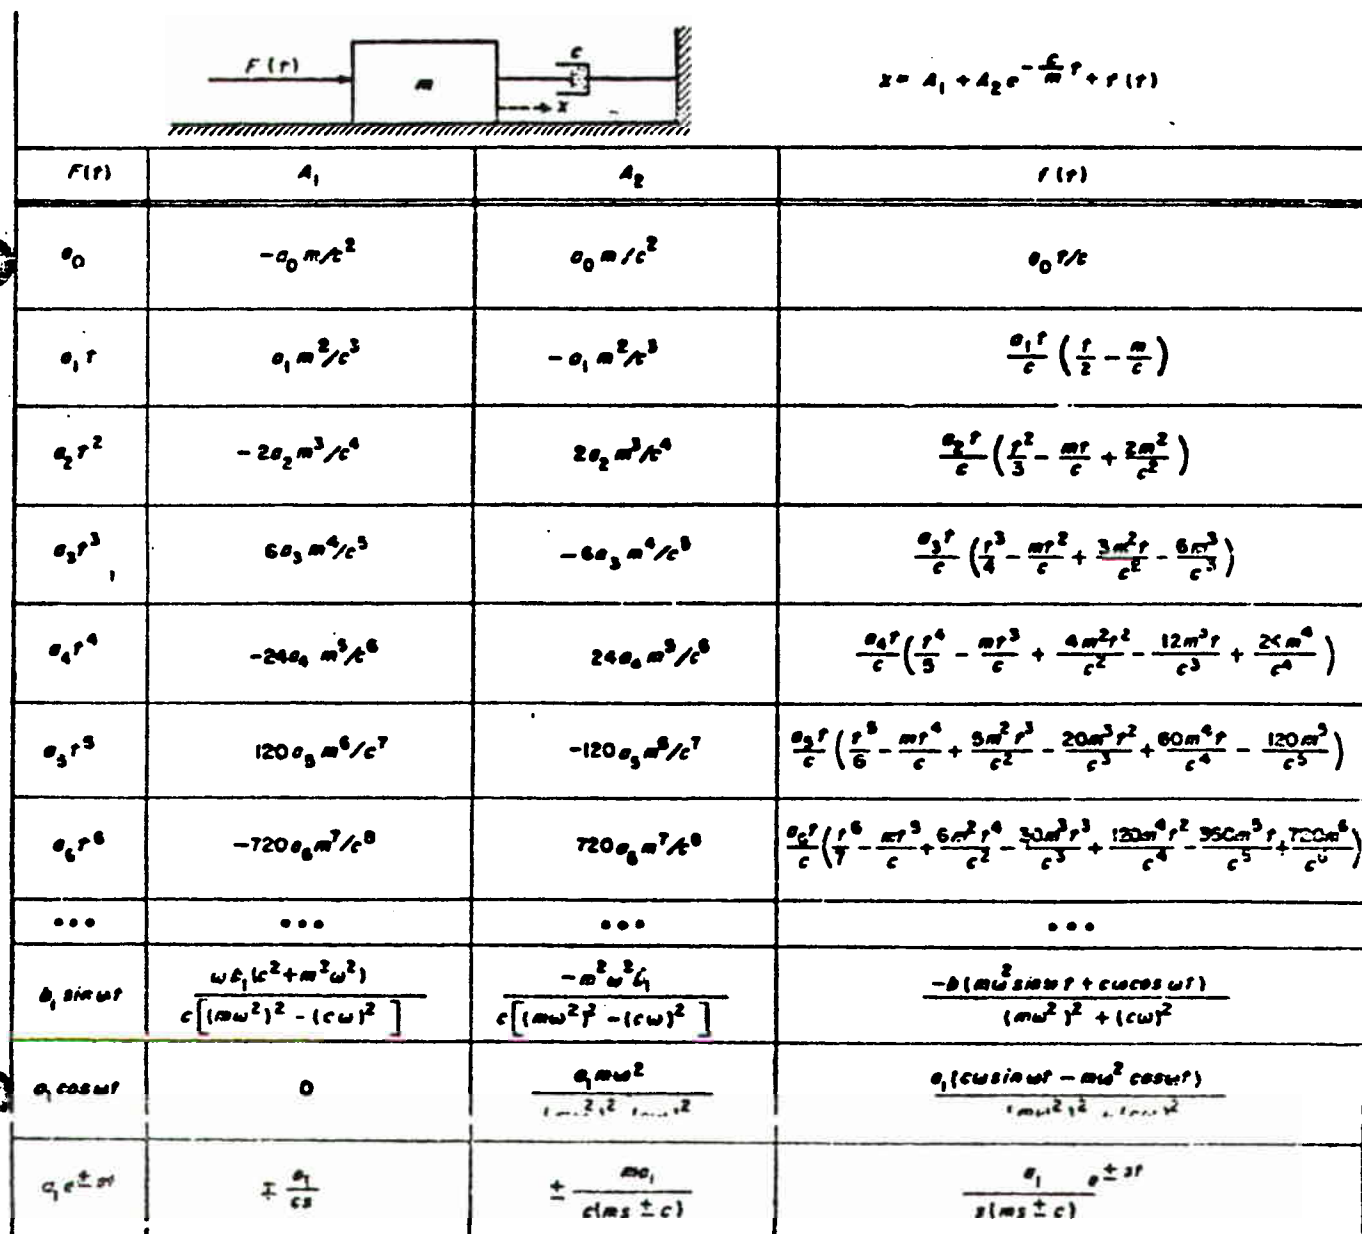 F(t)
m
c
x
x = A₁ + A₂ e^{-\frac{c}{m} t} + f(t)
F(t) A₁ A₂ f(t)
a₀ -a₀ m/c² a₀ m/c² a₀ t/c
a₁ t a₁ m²/c³ -a₁ m²/c³ \frac{a₁ t}{c} (\frac{t}{2} - \frac{m}{c})
a₂ t² -2a₂ m³/c⁴ 2a₂ m³/c⁴ \frac{a₂ t}{c} (\frac{t²}{3} - \frac{mt}{c} + \frac{2m²}{c²})
a₃ t³ 6a₃ m⁴/c⁵ -6a₃ m⁴/c⁵ \frac{a₃ t}{c} (\frac{t³}{4} - \frac{mt²}{c} + \frac{3m² t}{c²} - \frac{6m³}{c³})
a₄ t⁴ -24a₄ m⁵/c⁶ 24a₄ m⁵/c⁶ \frac{a₄ t}{c} (\frac{t⁴}{5} - \frac{mt³}{c} + \frac{4m² t²}{c²} - \frac{12m³ t}{c³} + \frac{24m⁴}{c⁴})
a₅ t⁵ 120a₅ m⁶/c⁷ -120a₅ m⁶/c⁷ \frac{a₅ t}{c} (\frac{t⁵}{6} - \frac{mt⁴}{c} + \frac{5m² t³}{c²} - \frac{20m³ t²}{c³} + \frac{60m⁴ t}{c⁴} - \frac{120m⁵}{c⁵})
a₆ t⁶ -720a₆ m⁷/c⁸ 720a₆ m⁷/c⁸ \frac{a₆ t}{c} (\frac{t⁶}{7} - \frac{mt⁵}{c} + \frac{6m² t⁴}{c²} - \frac{30m³ t³}{c³} + \frac{120m⁴ t²}{c⁴} - \frac{360m⁵ t}{c⁵} + \frac{720m⁶}{c⁶})
••• ••• ••• •••
b₁ sin ωt \frac{ωb₁(c² + m² ω²)}{c[(mω²)² - (cω)²]} \frac{-m² ω² b₁}{c[(mω²)² - (cω)²]} \frac{-b(mω² sin ωt + cω cos ωt)}{(mω²)² + (cω)²}
a₁ cos ωt 0 \frac{a₁ mω²}{} \frac{a₁(cω sin ωt - mω² cos ωt)}{}
a₁ e^{± st} ∓ \frac{a₁}{cs} ± \frac{ma₁}{c(ms ± c)} \frac{a₁}{s(ms ± c)} e^{± st}